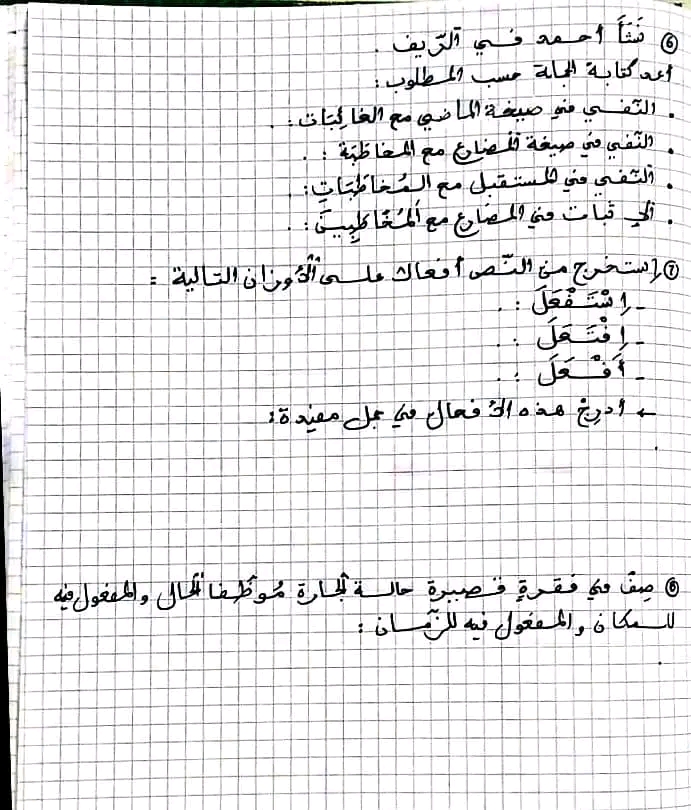 ⑥ نَشَأَ أحمد في الرّيف .
أعد كتابة الجملة حسب المطلوب :
. النّفي في صيغة الماضي مع الغائبات : .
. النّفي في صيغة المضارع مع المخاطَبَة : .
. النّفي في المستقبل مع المُخاطَبَاتِ :
. الإثبات في المضارع مع المُخَاطَبِينَ : .
⑦ إستخرج من النّص أفعالا على الأوزان التالية :
- اِسْتَفْعَلَ : .
- اِفْتَعَلَ : .
- أَفْعَلَ : .
← أدرِجْ هذه الأفعال في جمل مفيدة :
⑧ صِفْ في فقرةٍ قصيرة حالة الجارة مُوَظِّفا الحال والمفعول فيه
للمكان والمفعول فيه للزّمان :